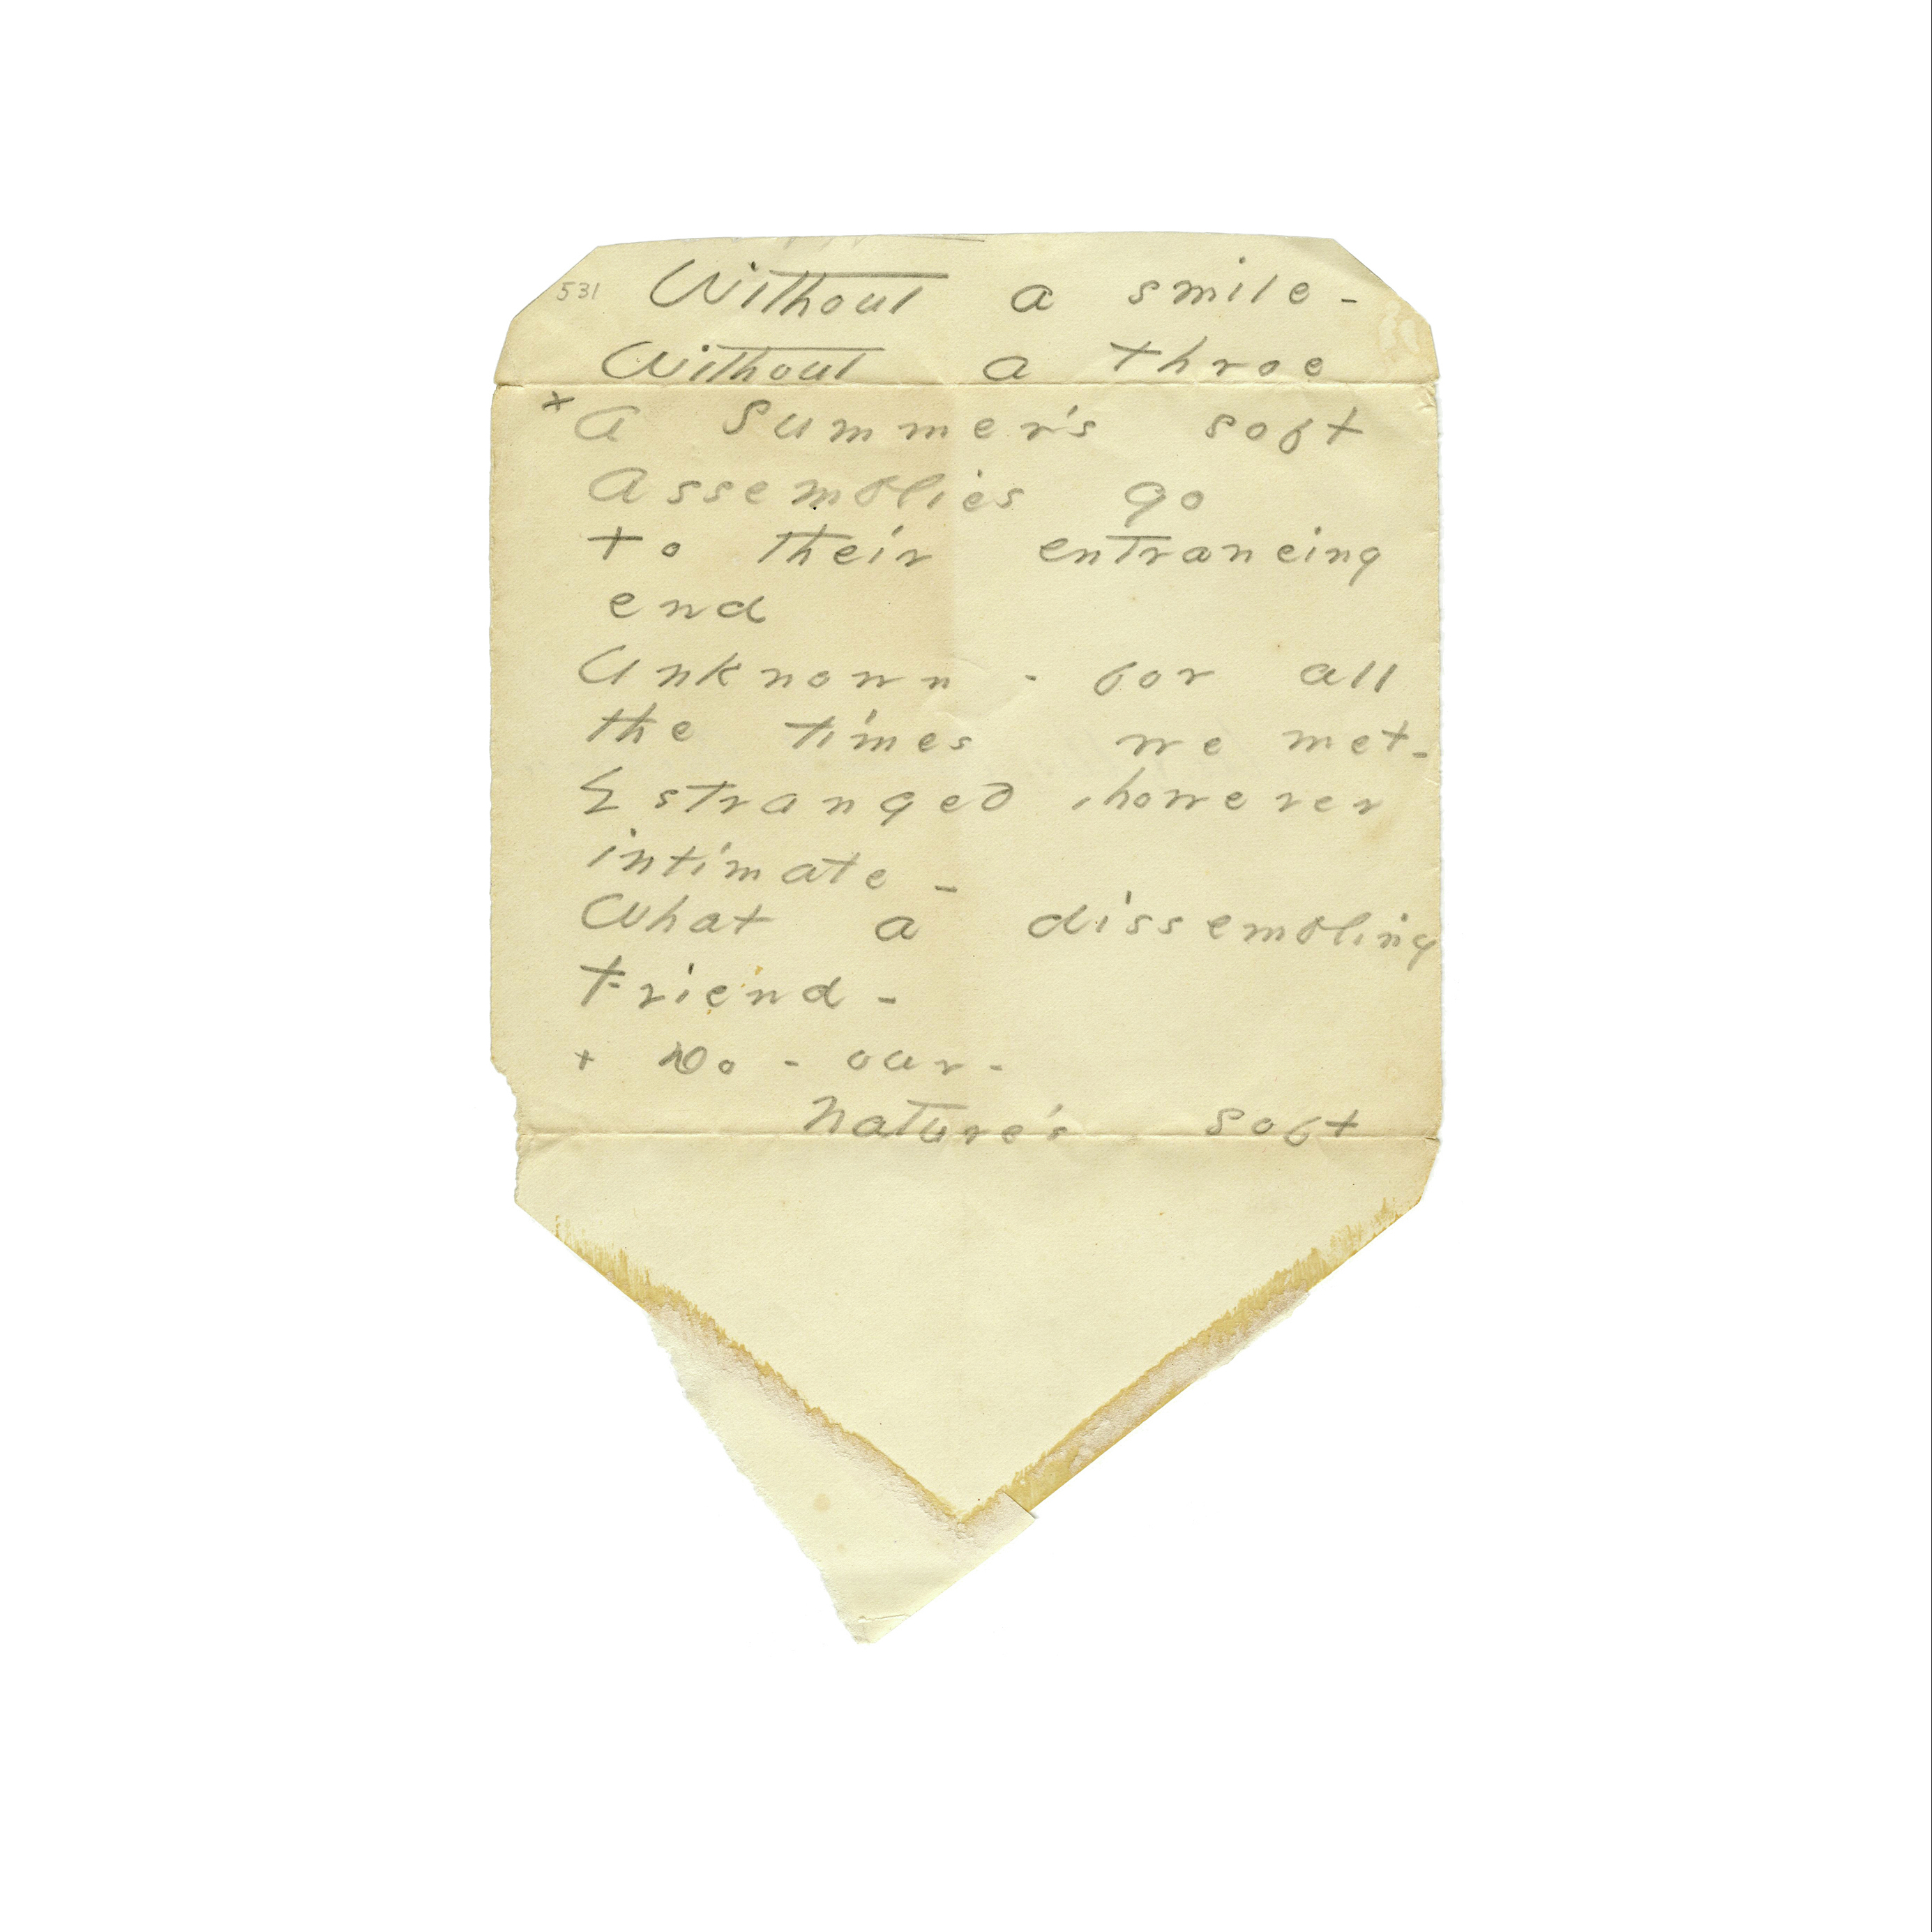 531 Without a smile -
Without a throe
+ A Summer's soft
Assemblies go
to their entrancing
end
Unknown - for all
the times we met -
Estranged, however
intimate -
What a dissembling
Friend -
+ Do - our -
Nature's soft